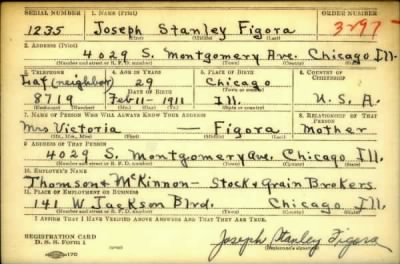 SERIAL NUMBER 1. NAME (Print) ORDER NUMBER
1235 Joseph Stanley Figora 3297
(First) (Middle) (Last)
2. ADDRESS (Print)
4029 S. Montgomery Ave. Chicago Ill.
(Number and street or R. F. D. number) (Town) (County) (State)
3. TELEPHONE 4. AGE IN YEARS 5. PLACE OF BIRTH 6. COUNTRY OF CITIZENSHIP
Laf (neighbor) 29 Chicago
(Exchange) DATE OF BIRTH (Town or county)
8719 Feb 11 - 1911 Ill. U. S. A.
(Number) (Mo.) (Day) (Yr.) (State or country)
7. NAME OF PERSON WHO WILL ALWAYS KNOW YOUR ADDRESS 8. RELATIONSHIP OF THAT PERSON
Mrs Victoria — Figora Mother
(Mr., Mrs., Miss) (First) (Middle) (Last)
9. ADDRESS OF THAT PERSON
4029 S. Montgomery Ave. Chicago Ill.
(Number and street or R. F. D. number) (Town) (County) (State)
10. EMPLOYER'S NAME
Thomson & McKinnon - Stock & Grain Brokers
11. PLACE OF EMPLOYMENT OR BUSINESS
141 W. Jackson Blvd. Chicago Ill.
(Number and street or R. F. D. number) (Town) (County) (State)
I AFFIRM THAT I HAVE VERIFIED ABOVE ANSWERS AND THAT THEY ARE TRUE.
REGISTRATION CARD
D. S. S. Form 1 Joseph Stanley Figora
(Registrant's signature)